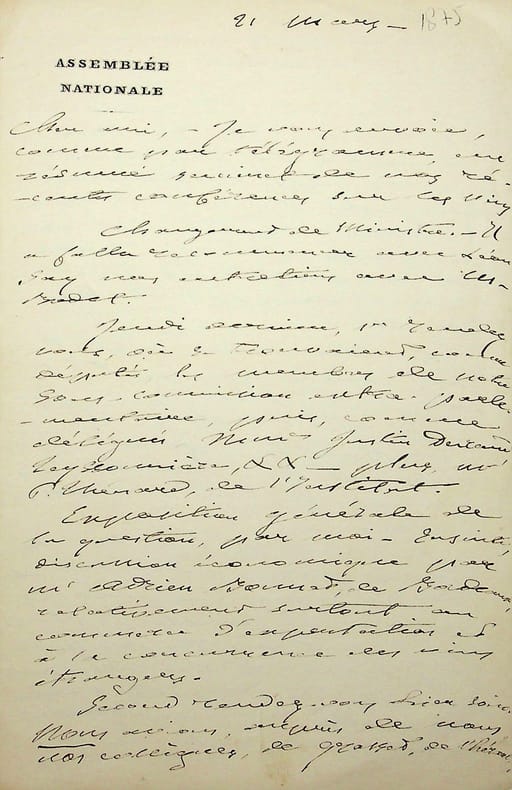 21 Mars — 1875
ASSEMBLÉE
NATIONALE
Cher ami, — Je vous envoie,
comme par télégramme, un
résumé sommaire de nos ré-
-centes conférences sur les vins
Changement de Ministre. — Il
a fallu recommencer avec Léon
Say nos entretiens avec M.
Jeudi dernier, 1er Rendez
vous, où se trouvaient, comme
députés les membres de notre
Sous-commission extra-parle-
-mentaire, puis, comme
délégués Justin
plus, Mr
P. Thénard, de l'Institut.
Exposition générale de
la question, par moi — Ensuite,
discussion économique par
Mr Adrien de
relativement surtout au
commerce d'exportation et
à la concurrence des vins
étrangers.
Second rendez-vous hier soir.
Nous avions, auprès de nous
nos collègues, de Grasset, de